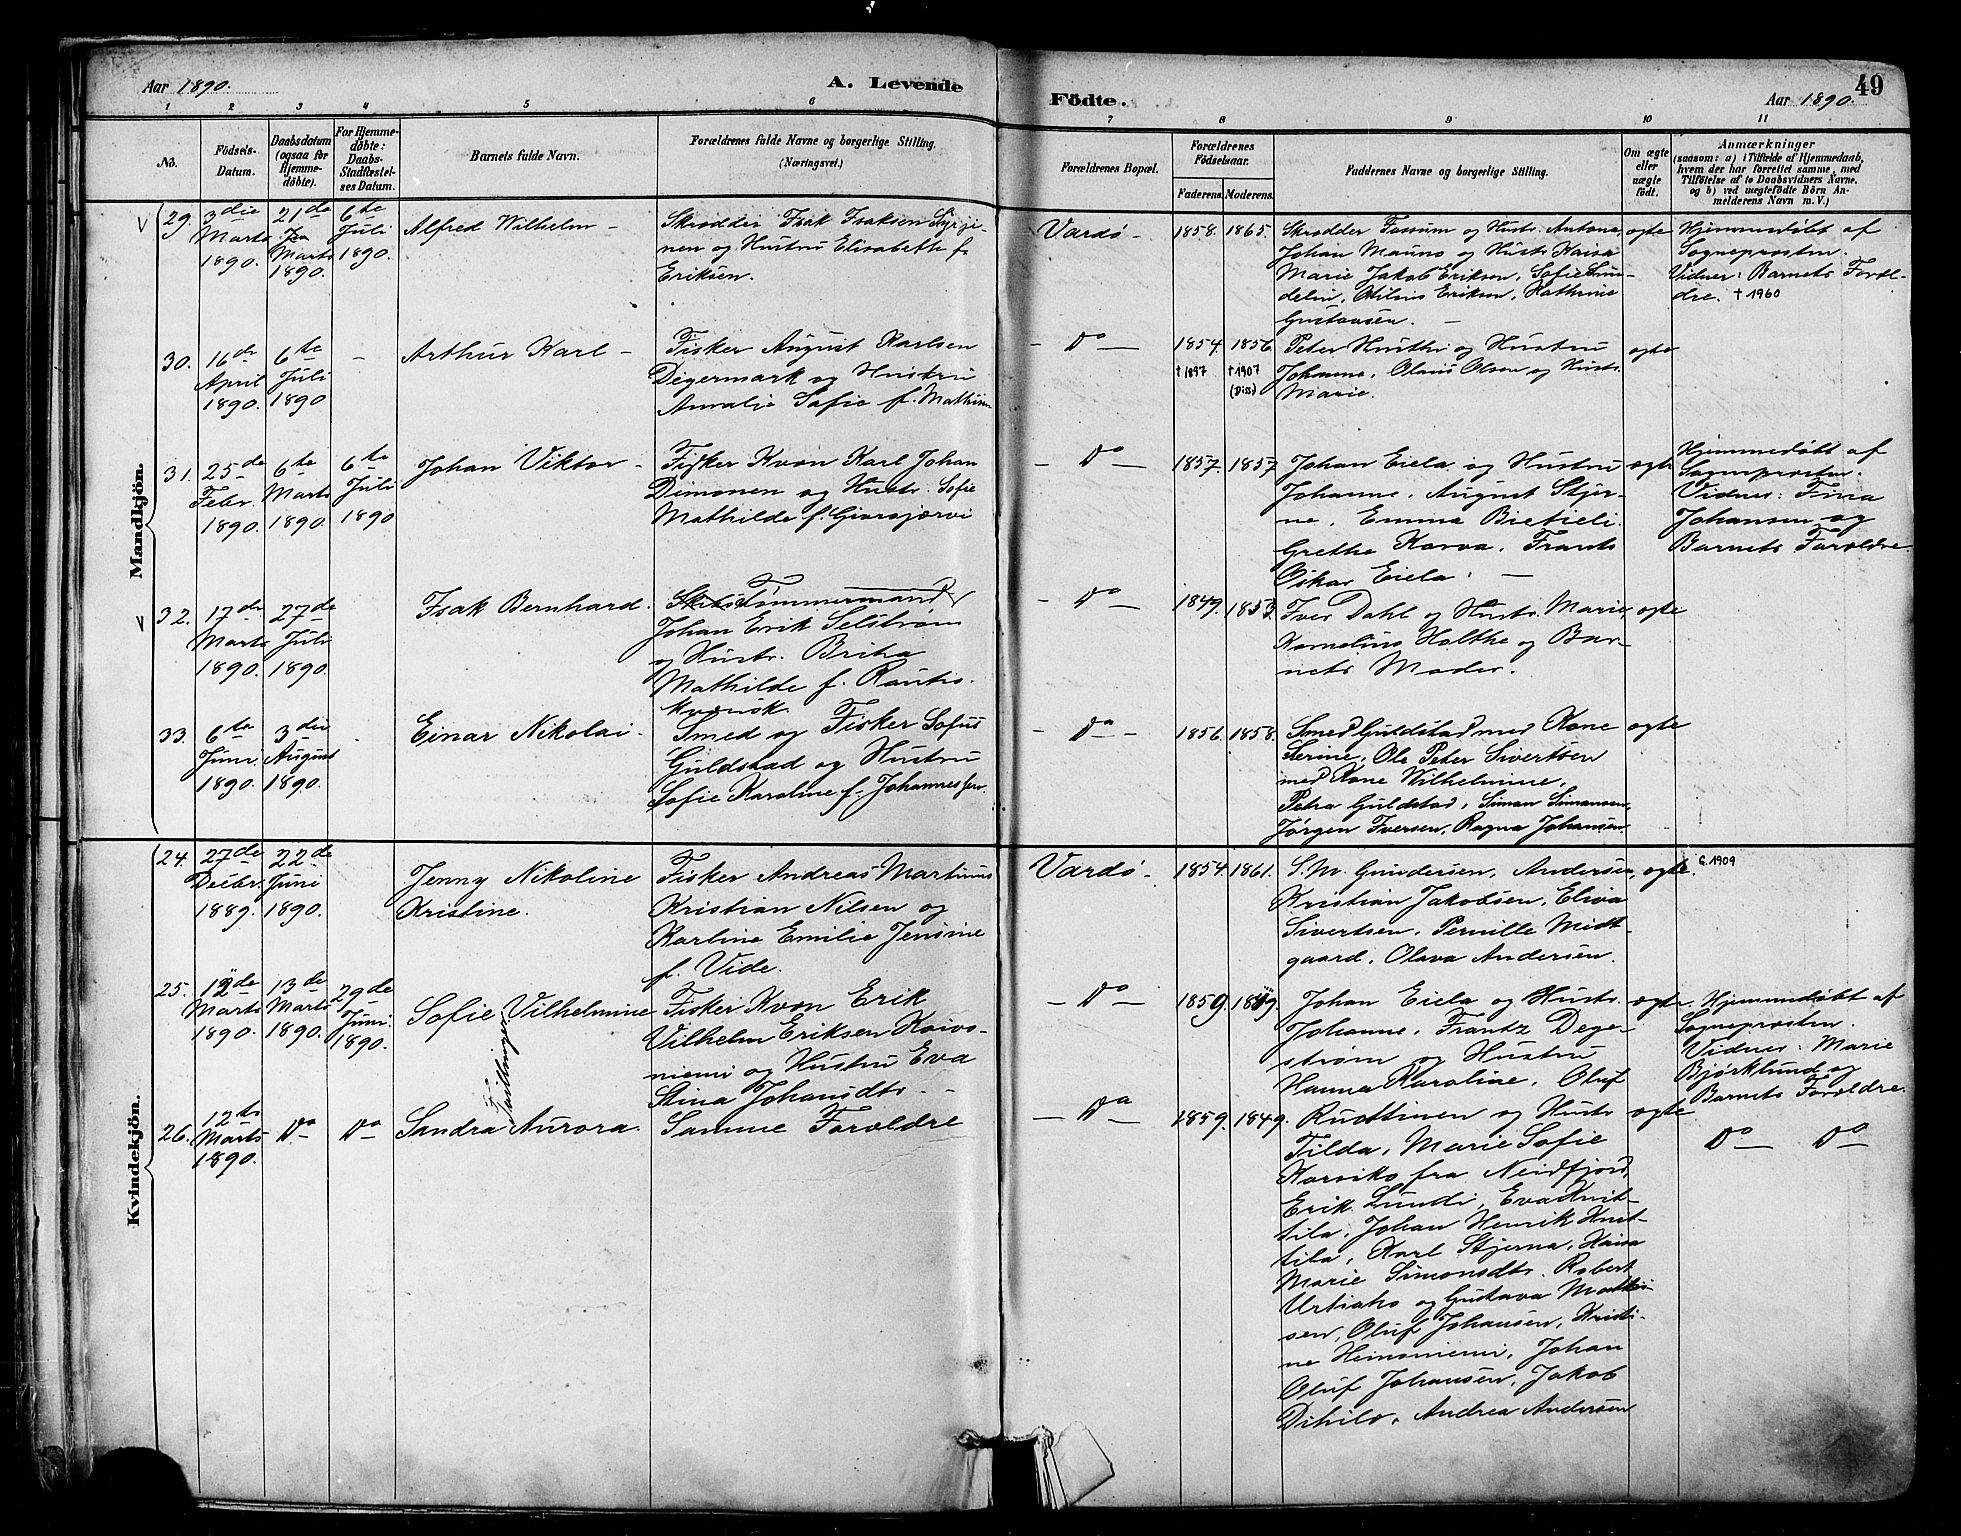 Aar 1890. A. Levende Födte. Aar 1890. 49
1 2 3 4 5 6 7 8 9 10 11
No.
Födsels-
Datum.
Daabsdatum
(ogsaa for
Hjemme-
döbte).
For Hjemme-
döbte:
Daabs-
Stadfæstel-
ses Datum.
Barnets fulde Navn.
Forældrenes fulde Navne og borgerlige Stilling.
(Næringsvei.)
Forældrenes Bopæl.
Forældrenes
Födselsaar.
Faderens. Moderens.
Faddernes Navne og borgerlige Stilling.
Om ægte
eller
uægte
født.
Anmærkninger
(saasom: a) i Tilfælde af Hjemmedaab,
hvem der har forrettet samme, med
Tilföielse af to Daabsvidners Navne,
og b) ved uægtefödte Börn An-
melderens Navn m. V.)
Mandkjön.
V 29.
3die
Marts
1890.
21de
Marts
1890.
6te
Juli
1890.
Alfred Wilhelm -
Skrædder Isak Isaksen
nen og Hustru Elisabette f.
Eriksen.
Vardø -
1858. 1865.
Skrædder Fossum og Hustr. Antona,
Johan Mauno og Hustr. Kaisa
Marie, Jakob Eriksen, Sofie Lun-
delin, Eriksen, Kathrine
Gustavsen. -
ægte
Hjemmedøbt af
Sogneprosten.
Vidner: Barnets Foræl-
dre. † 1960
30.
16de
April
1890.
6te
Juli
1890
-
Arthur Karl -
Fisker August Karlsen
Degermark og Hustru
Amalie Sofie f. Mathisen
- Do -
1854. 1856.
† 1897 † 1907
(Diss)
Peter og Hustru
Johanne, Olaus Olsen og Hustr.
Marie.
ægte
31.
25de
Febr.
1890.
6te
Marts
1890.
6te
Juli
1890
Johan Viktor -
Fisker Kvæn Karl Johan
Dimonen og Hustr. Sofie
Mathilde f.
- Do -
1857. 1857
Johan Eiela og Hustru
Johanne, August Stjer-
ne, Emma
Grethe Korva, Frants
Oskar Eiela. -
ægte
Hjemmedøbt af
Sogneprosten.
Vidner: Fina
Johansen og
Barnets Forældre.
V 32.
17de
Marts
1890.
27de
Juli
1890.
Isak Bernhard.
Tømmermand
Johan Erik Selstrøm
og Hustr. Brita
Mathilde f. Rautio.
Kvænsk.
- Do -
1849. 1853.
Iver Dahl og Hustr. Marie,
Kornelius Holthe og Bar-
nets Moder.
ægte
33.
6te
Juni
1890.
3die
August
1890.
-
Einar Nikolai -
Smed og Fisker Sofus
Guldstad og Hustru
Sofie Karoline f. Johannessen.
- Do -
1856. 1858.
Smed Guldstad med Kone
Serine, Ole Peter Sivertsen
med Kone Wilhelmine,
Petra Guldstad, Simon Simonsen,
Jørgen Iversen, Ragna Johansen
ægte
Kvindekjön.
24.
27de
Decbr.
1889.
22de
Juni
1890.
Jenny Nikoline
Kristine.
Fisker Andreas Martinus
Kristian Nilsen og
Karline Emilie Jensine
f. Vide.
Vardø -
1854. 1861.
S. M. Gundersen, Andersen,
Kristian Jakobsen, Elisa
Sivertsen, Pernille Midt-
gaard, Olava Andersen.
ægte.
G. 1909
25.
12de
Marts
1890.
13de
Marts
1890.
29de
Juni
1890.
Sofie Vilhelmine
Fisker Kvæn Erik
Vilhelm Eriksen Koivo-
niemi og Hustru Eva
Stina Johansdtr. -
- Do -
1859. 1849.
Johan Eiela og Hustr.
Johanne, Frantz Dege-
strøm og Hustru
Hanna Karoline, Oluf
ægte.
Hjemmedøbt af
Sogneprosten.
Vidner: Marie
Bjørklund og
Barnets Forældre.
Tvillinger
26.
12te
Marts
1890.
Do
Do
Sandra Aurora.
Samme Forældre
- Do -
1859. 1849.
Ruottinen og Hustr.
Tilda, Marie Sofie
Karviko fra Neidfjord,
Erik Lundi, Eva Knit-
tila, Johan Henrik Knit-
tila, Karl Stjerna, Kaisa
Marie Simonsdtr. Robert
Urtiaho og Gustava Mathi-
sen, Oluf Johansen, Kristi-
ne Heinoniemi, Johan
Oluf Johansen, Jakob
Dihilo, Andrea Andersen
ægte
Do - Do -